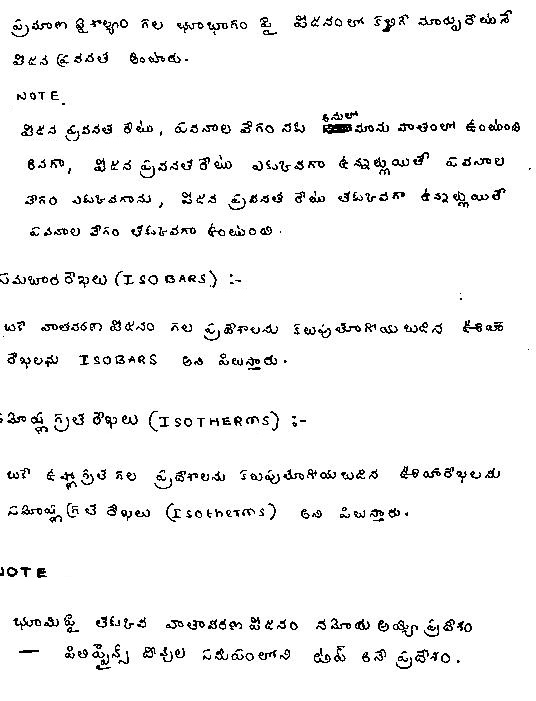 ప్రమాణ వైశాల్యం గల భూభాగం పై పీడనంలో కల్గే మార్పురేటునే
పీడన ప్రవణత అంటారు.
NOTE.
పీడన ప్రవణత రేటు, పవనాల వేగం నకు అనులో
మాను పాతంలో ఉంటుంది
అనగా, పీడన ప్రవణత రేటు ఎక్కువగా ఉన్నట్లయితే పవనాల
వేగం ఎక్కువగాను, పీడన ప్రవణత రేటు తక్కువగా ఉన్నట్లయితే
పవనాల వేగం తక్కువగా ఉంటుంది.
సమభార రేఖలు (ISOBARS) :-
ఒకే వాతవరణ పీడనం గల ప్రదేశాలను కలుపుతూగీయ బడిన ఊహా
రేఖలను ISOBARS అని పిలుస్తారు.
సమోష్ణ గ్రత రేఖలు (ISOTHERMS) :-
ఒకే ఉష్ణోగ్రత గల ప్రదేశాలను కలుపుతూగీయబడిన ఊహారేఖలను
సమోష్ణ గ్రత రేఖలు (Isotherms) అని పిలుస్తారు.
NOTE
భూమిపై తక్కువ వాతావరణ పీడనం నమోదు అయ్యే ప్రదేశం
— పిలిప్పైన్స్ దీవుల సమీపంలోని అనే ప్రదేశం.